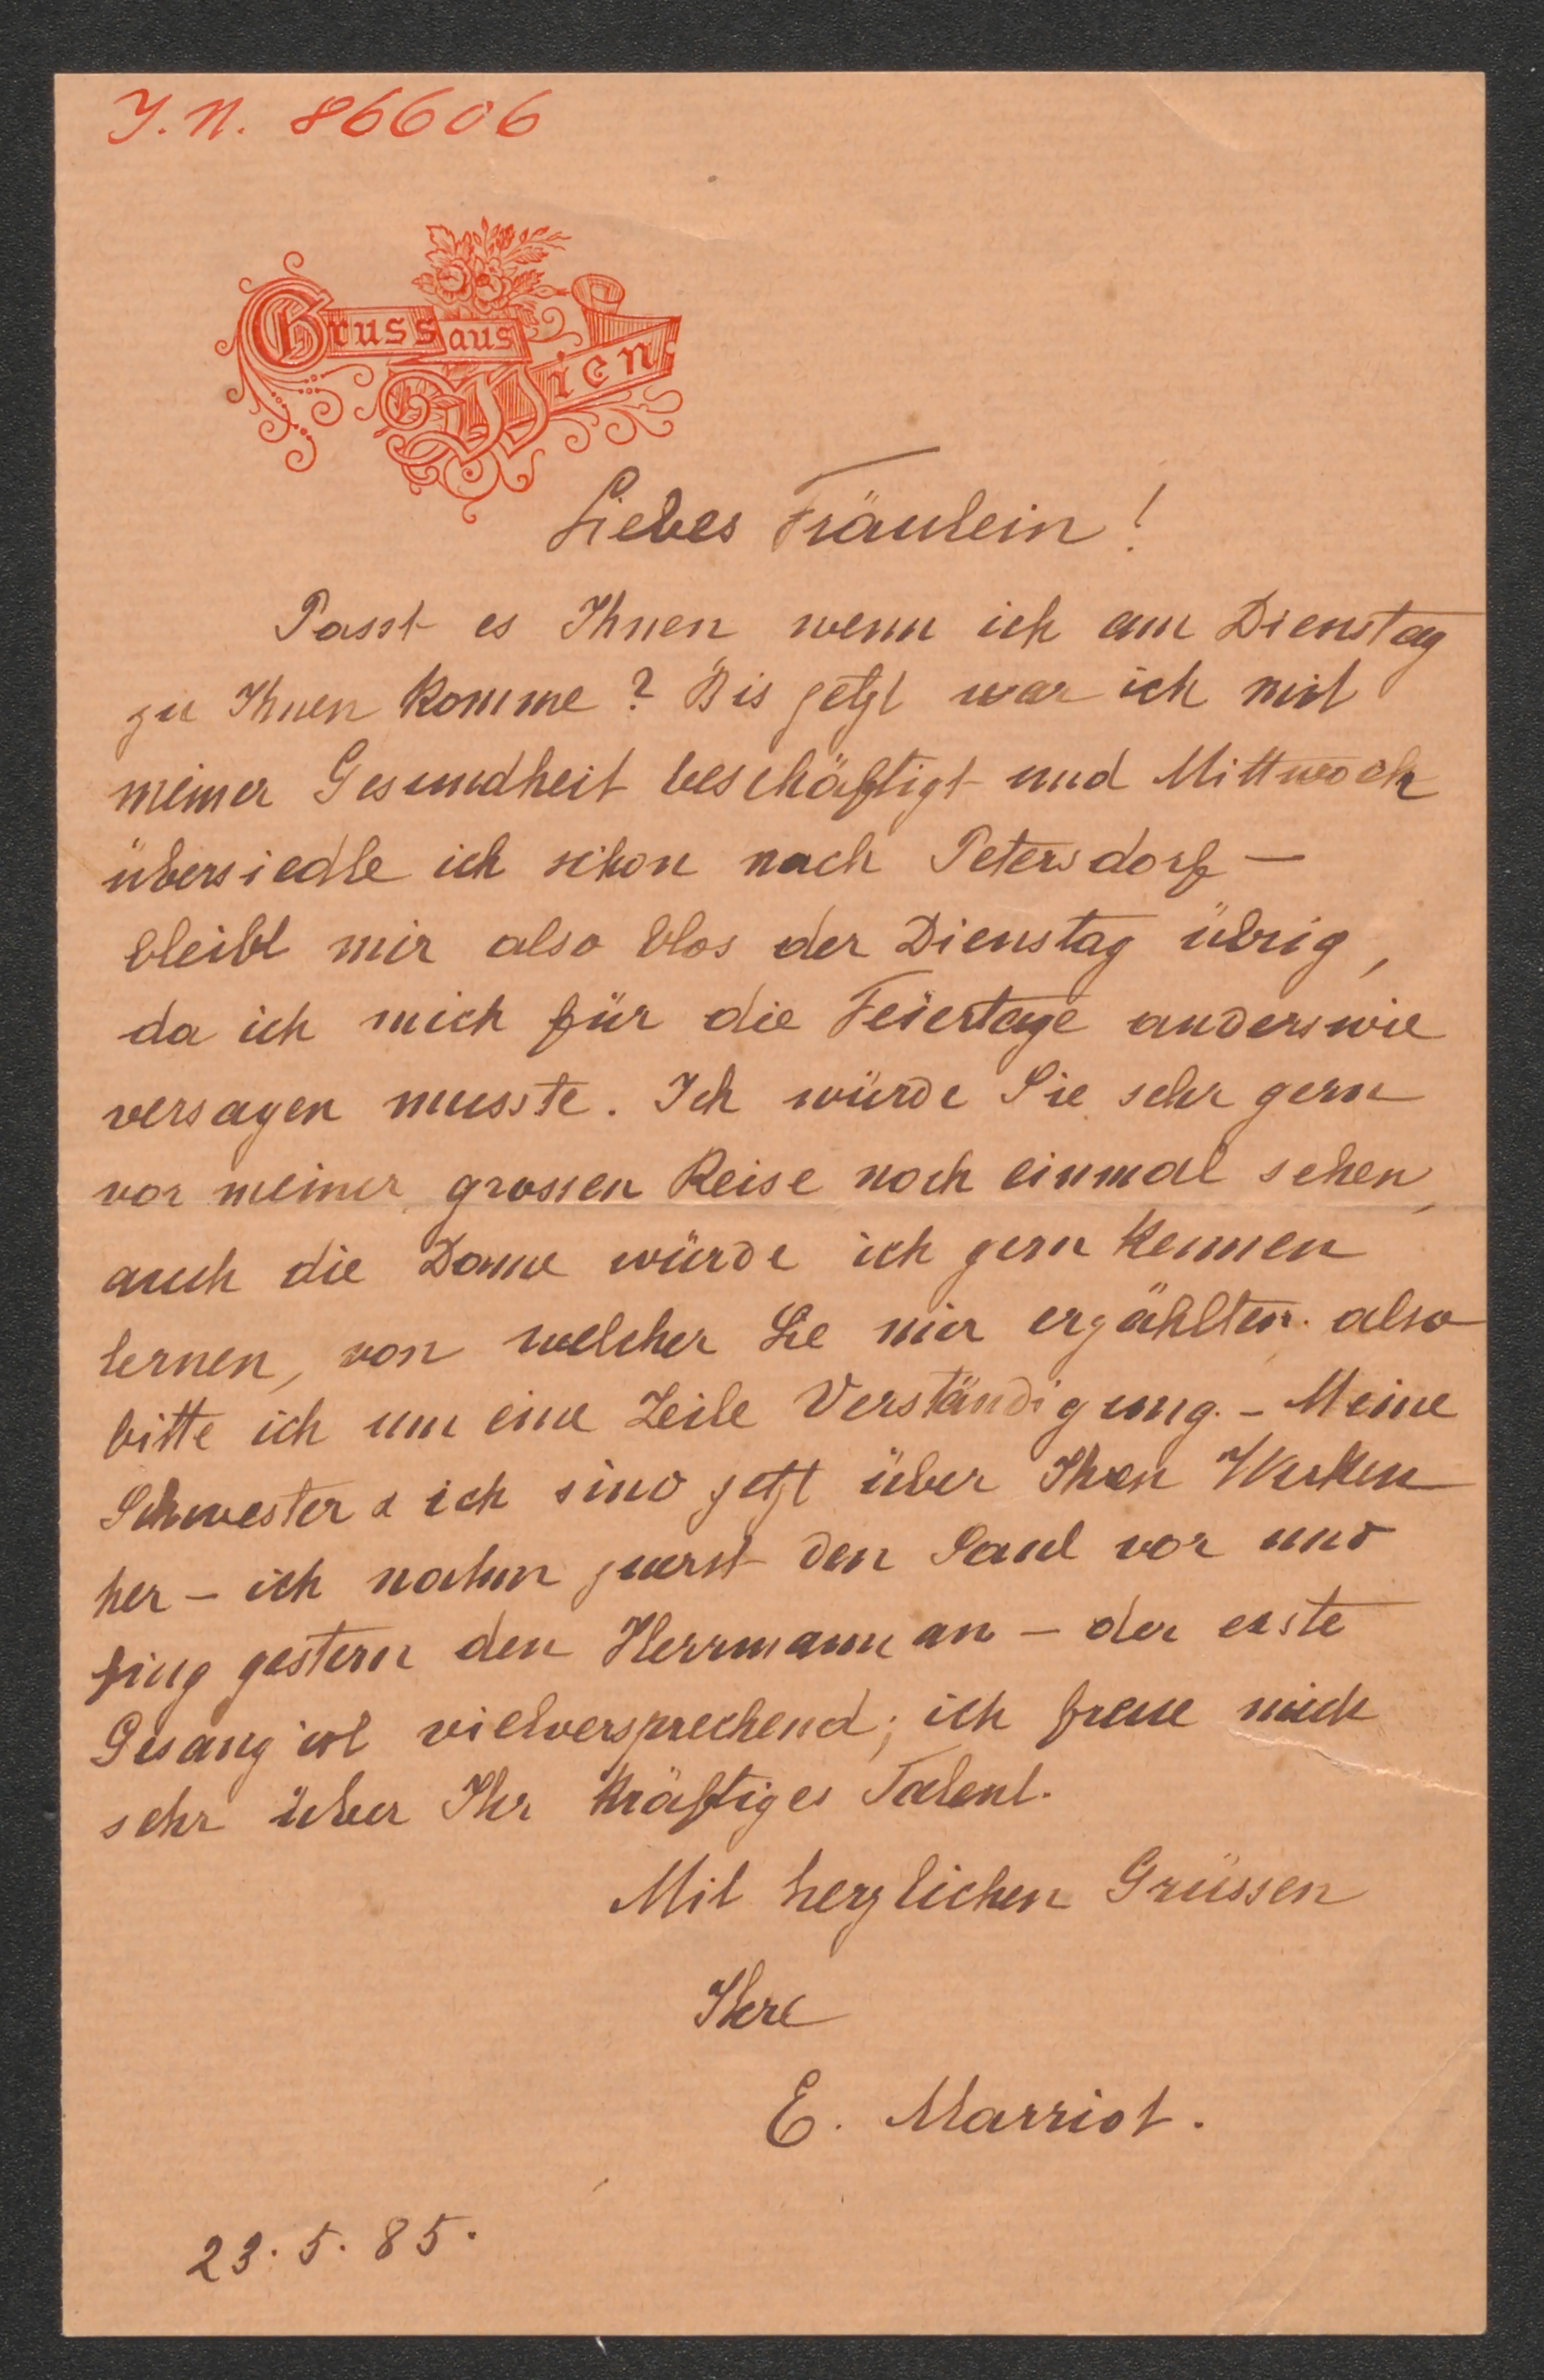 J.N. 86606
Gruss aus
Wien
Liebes Fräulein!
Passt es Ihnen, wenn ich am Dienstag
zu Ihnen komme? Bis jetzt war ich mit
meiner Gesundheit beschäftigt und Mittwoch
übersiedle ich schon nach Petersdorf —
bleibt mir also blos der Dienstag übrig,
da ich mich für die Feiertage anderswie
versagen musste. Ich würde Sie sehr gern
vor meiner grossen Reise noch einmal sehen,
auch die Dame würde ich gern kennen
lernen, von welcher Sie mir erzählten. also
bitte ich um eine Zeile Verständigung. – Meine
Schwester & ich sind jetzt über Ihren Werken
her – ich nahm zuerst den Saul vor und
fing gestern den Herrmann an – der erste
Gesang ist vielversprechend; ich freue mich
sehr über Ihr kräftiges Talent.
Mit herzlichen Grüssen
Ihre
E. Marriot.
23. 5. 85.